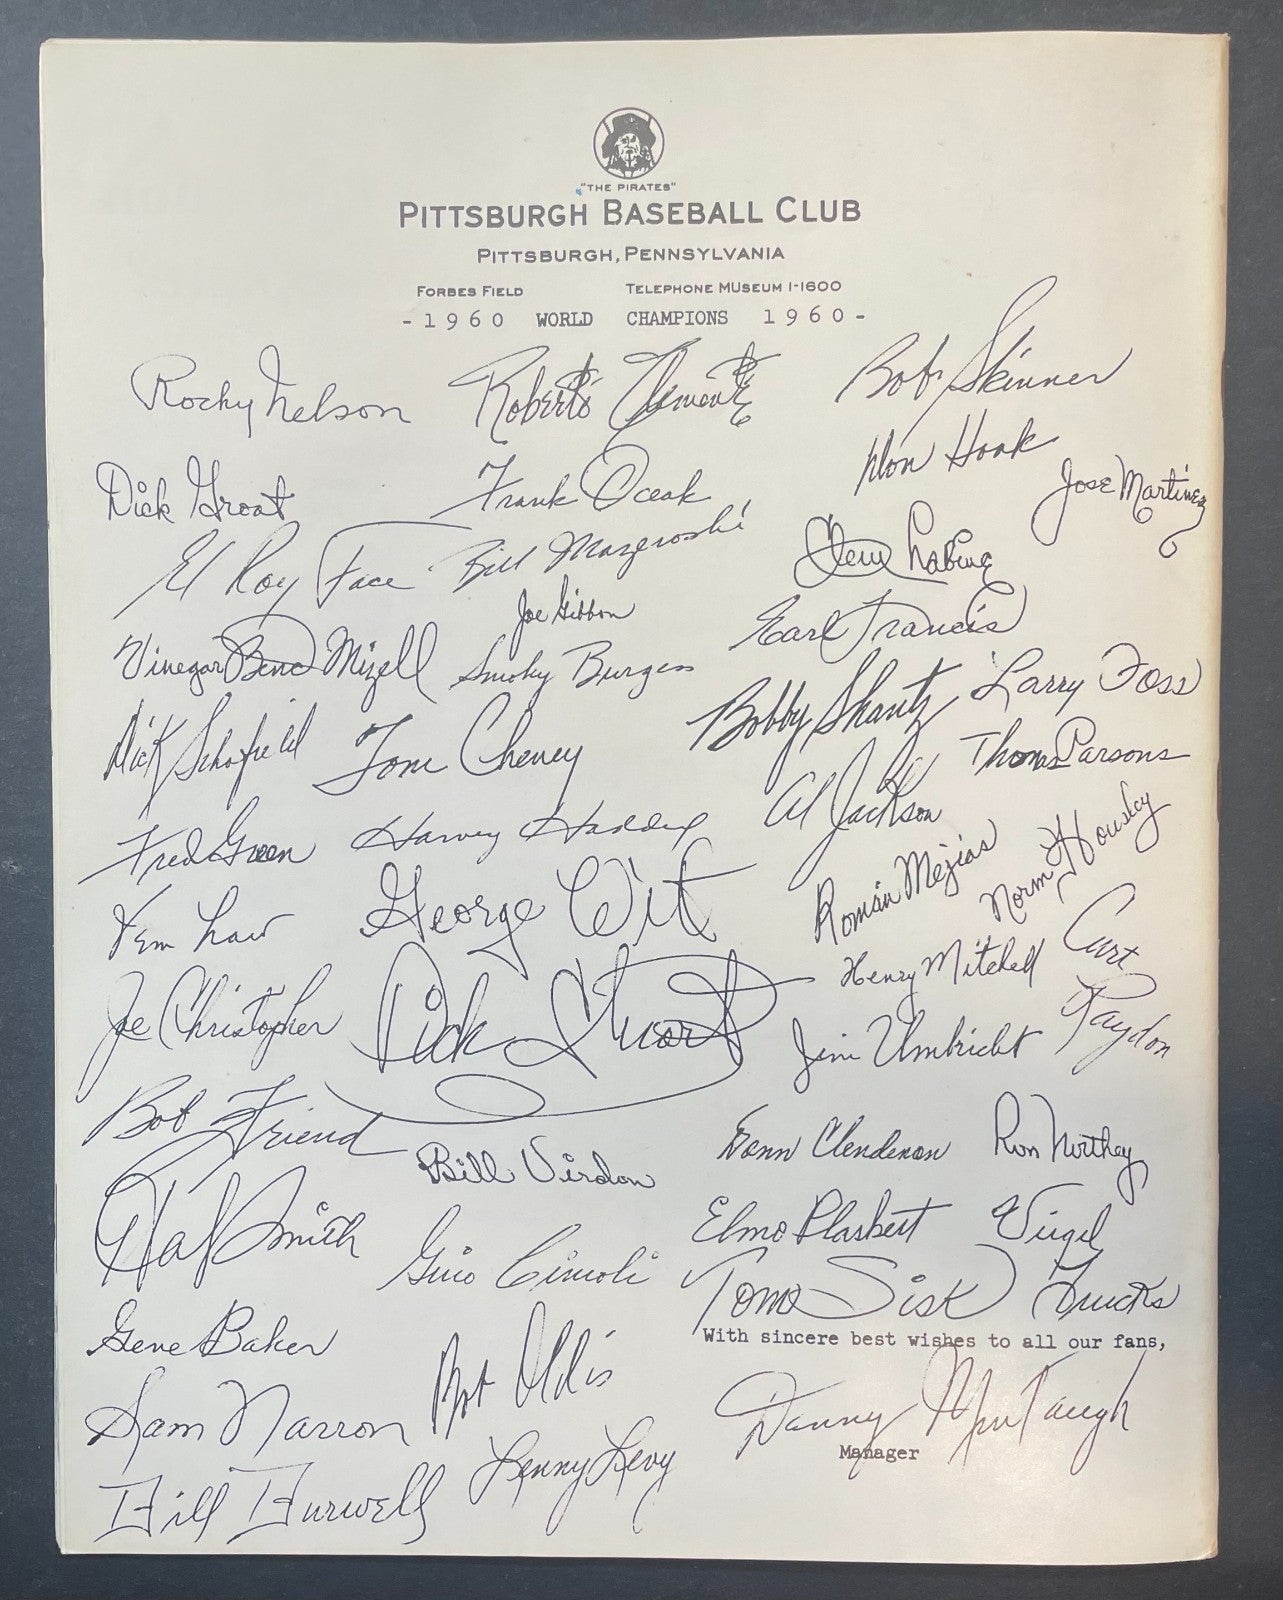 "THE PIRATES"
PITTSBURGH BASEBALL CLUB
PITTSBURGH, PENNSYLVANIA
FORBES FIELD TELEPHONE MUSEUM 1-1600
-1960 WORLD CHAMPIONS 1960-
Rocky Nelson
Roberto Clemente
Bob Skinner
Dick Groat
Frank Oceak
Don Hoak
Jose Martinez
El Roy Face
Bill Mazeroski
Clem Labine
Joe Gibbon
Earl Francis
Vinegar Bend Mizell
Smoky Burgess
Bobby Shantz
Larry Foss
Dick Schofield
Tom Cheney
Thomas Parsons
Al Jackson
Fred Green
Harvey Haddix
Román Mejias
Norm Housley
Vern Law
George Witt
Henry Mitchell
Curt
Raydon
Joe Christopher
Dick Stuart
Jim Umbricht
Bob Friend
Bill Virdon
Donn Clendenon
Ron Northey
Hal Smith
Gino Cimoli
Elmo Plaskett
Virgil
Trucks
Tom Sisk
Gene Baker
Bob Oldis
With sincere best wishes to all our fans,
Sam Narron
Lenny Levy
Danny Murtaugh
Manager
Bill Burwell